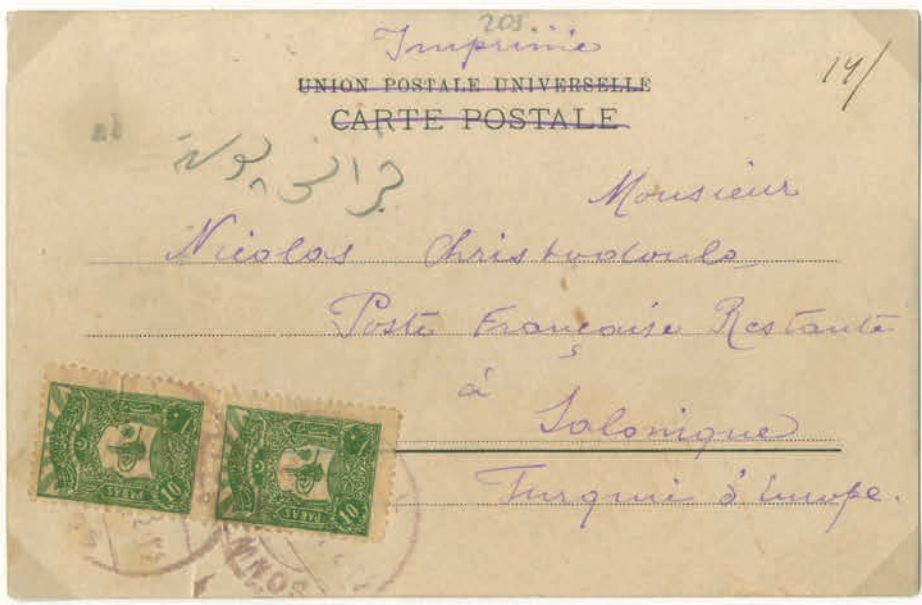 205.
Imprimée
14/
UNION POSTALE UNIVERSELLE
CARTE POSTALE
Monsieur
Nicolas Christodoulo
Poste Française Restante
à
Salonique
Turquie d'Europe.
10 PARAS
10 PARAS